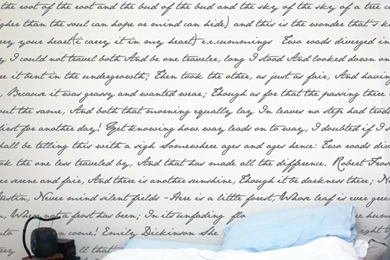 the root of the root and the bud of the bud and the sky of the sky of a tree c
gher than the soul can hope or mind can hide) and this is the wonder that's k
rry your heart(i carry it in my heart) e.e.cummings Two roads diverged in
y I could not travel both And be one traveler, long I stood And looked down on
re it bent in the undergrowth; Then took the other, as just as fair, And havin
, Because it was grassy and wanted wear; Though as for that the passing there
ut the same, And both that morning equally lay In leaves no step had trodd
first for another day! Yet knowing how way leads on to way, I doubted if I s
hall be telling this with a sigh Somewhere ages and ages hence: Two roads dive
ok the one less traveled by, And that has made all the difference. Robert Fros
er serene and fair, And there is another sunshine, Though it be darkness there; N
ustin, Never mind silent fields - Here is a little forest, Whose leaf is ever gree
n, Where not a frost has been; In its unfading flo
into come! Emily Dickinson She
all that